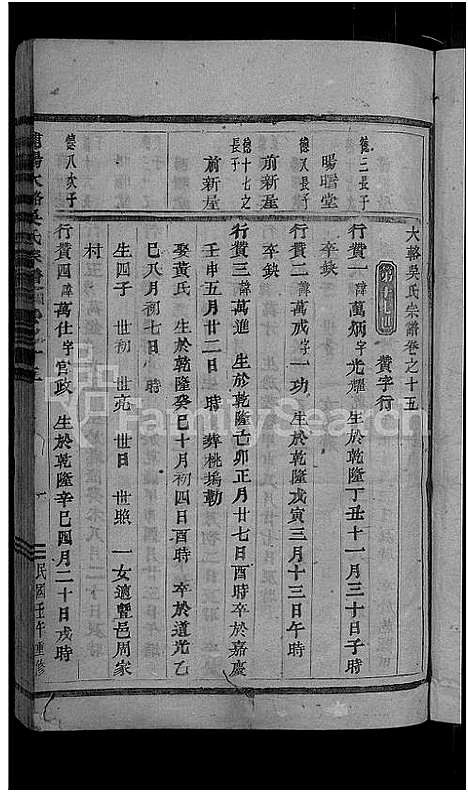 大輅吳氏宗譜卷之十五
贊字行
德二長子
暘暿堂
行贊一諱萬炳字光耀 生於乾隆丁丑十一月三十日子時
卒缺
德八長子
前新屋
行贊二諱萬戒字一功 生於乾隆戊寅三月十三日午時
卒缺
德十七之長子
前新屋
行贊三諱萬進 生於乾隆亡卯正月廿七日酉時卒於嘉慶
壬申五月廿二日 時 葬桃塢勘
娶黃氏 生於乾隆癸巳十月初四日酉時 卒於道光乙
巳八月初七日 時
生四子 世初 世亮 世日 世照 一女適暨邑周家
村
德八次子
行贊四諱萬仕字官政 生於乾隆辛巳四月二十日戌時
民國壬午重修
FamilySearch